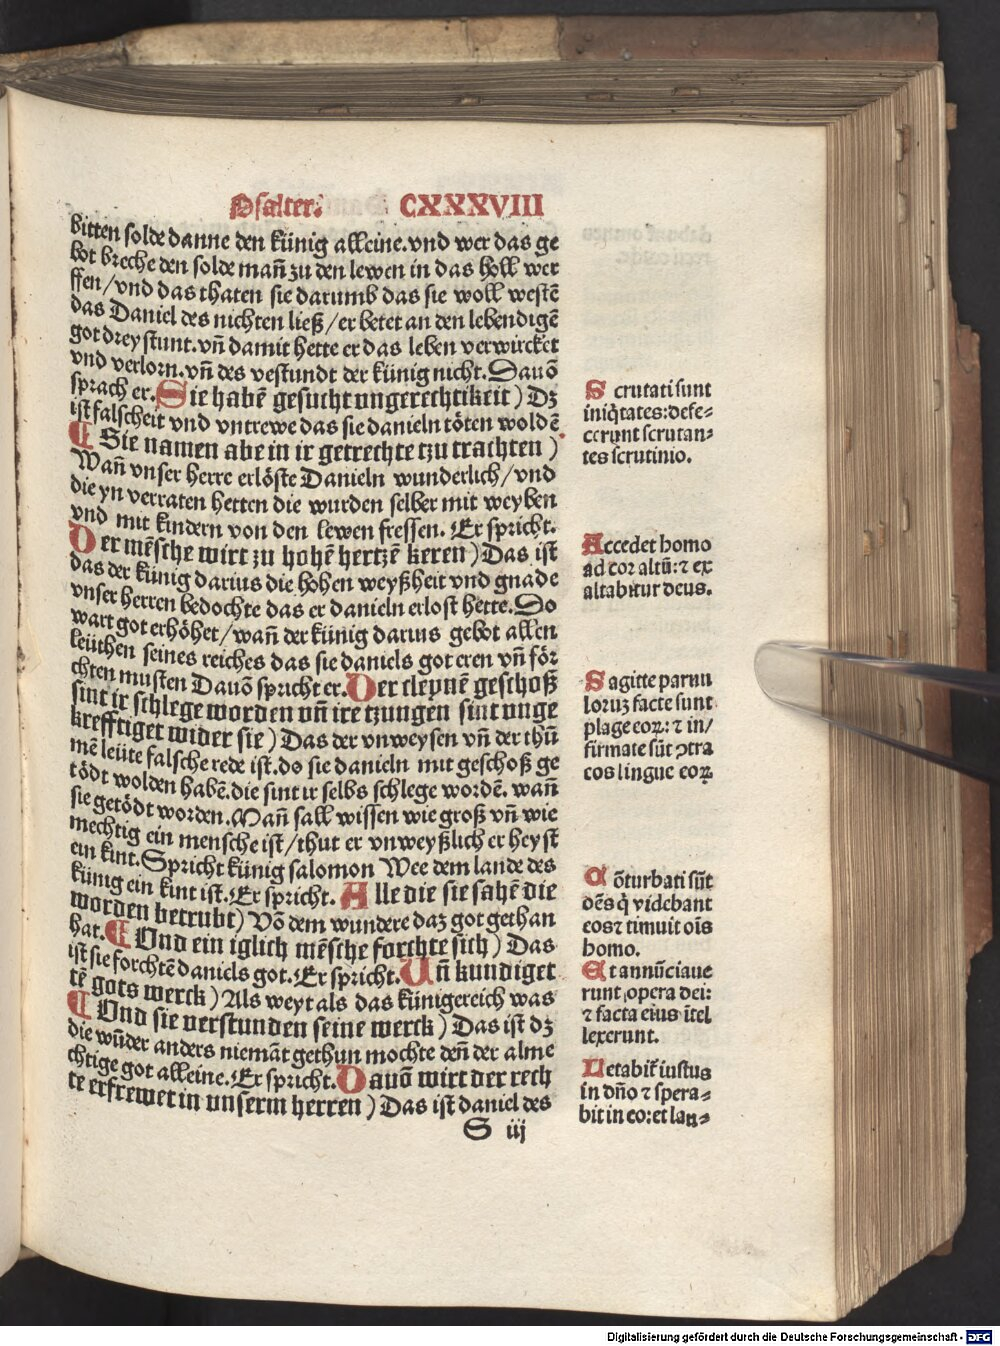 Psalter. CXXXVIII
bitten solde danne den künig alleine. vnd wer das ge
bot breche den solde mañ zu den lewen in das holl wer
ffen/ vnd das thaten sie darumb das sie woll westē
das Daniel des nichten ließ/ er betet an den lebendigē
got drey stunt. vñ damit hette er das leben verwircket
vnd verlorn. vñ des vestundt der künig nicht. Dauō
sprach er. Sie habē gesucht vngerechtikeit) Dz
ist falscheit vnd vntrewe das sie danieln töten woldē
Sie namen abe in ir getrechte tzu trachten)
Wañ vnser herre erlöste Danieln wunderlich/ vnd
die yn verraten hetten die wurden selber mit weyben
vnd mit kindern von den lewen fressen. Er spricht.
Der mēsche wirt zu hohē hertzē keren) Das ist
das der künig darius die hohen weyßheit vnd gnade
vnser herren bedochte das er danieln erlost hette. Do
wart got erhöhet/ wañ der künig darius gebot allen
leüthen seines reiches das sie daniels got eren vñ för
chten musten Dauō spricht er. Der clepnē geschoß
sint ir schlege worden vñ ire tzungen sint vnge
krefftiget wider sie) Das der vnweysen vñ der thü
mē leüte falsche rede ist. do sie danieln mit geschoß ge
tödt wolden habē. die sint ir selbs schlege wordē. wañ
sie getödt worden. Mañ sall wissen wie groß vñ wie
mechtig ein mensche ist/ thut er vnweyßlich er heyst
ein kint. Spricht künig salomon Wee dem lande des
künig ein kint ist. Er spricht. Alle die sie sahē die
worden betrubt) Võ dem wundere daz got gethan
hat. Vnd ein iglich mēsche forchte sich) Das
ist sie forchtē daniels got. Er spricht. Vñ kundiget
tē gots werck) Als weyt als das künigereich was
Vnd sie verstunden seine werck) Das ist dz
die wūder anders niemāt gethun mochte deñ der alme
chtige got alleine. Er spricht. Dauō wirt der rech
te erfrewet in vnserm herren) Das ist daniel des
S iij
Scrutati sunt
iniq̃tates: defe=
cerunt scrutan=
tes scrutinio.
Accedet homo
ad cor altū: ⁊ ex
altabitur deus.
Sagitte paruu
loruz facte sunt
plage eoꝝ: ⁊ in/
firmate sūt ↄtra
eos lingue eoꝝ
Cōturbati sūt
oēs q̇ videbant
eos⁊ timuit oīs
homo.
Et annūciaue
runt opera dei:
⁊ facta eius ītel
lexerunt.
Letabit̃ iustus
in dño ⁊ spera=
bit in eo: et lau=
Digitalisierung gefördert durch die Deutsche Forschungsgemeinschaft - DFG